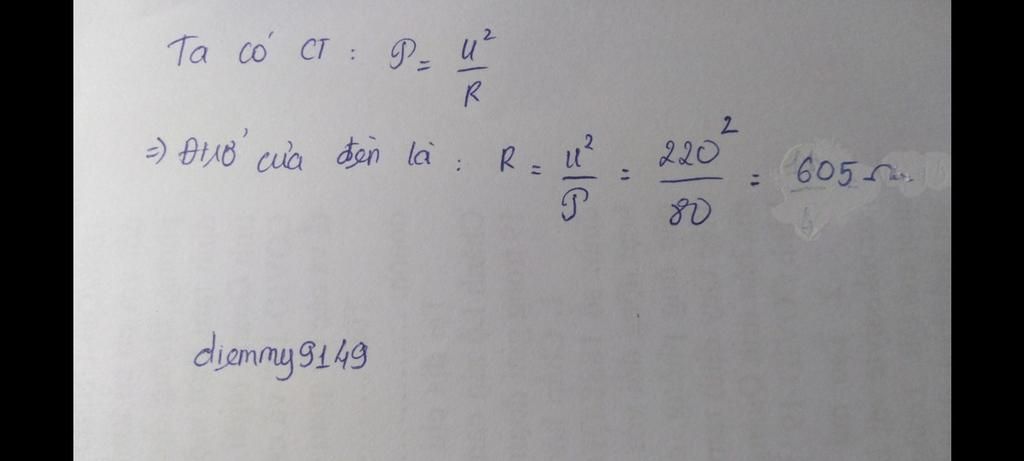 Ta có CT : P = U²/R
=> Đtrở của đèn là : R = U²/P = 220²/80 = 605 Ω
diemmy9149